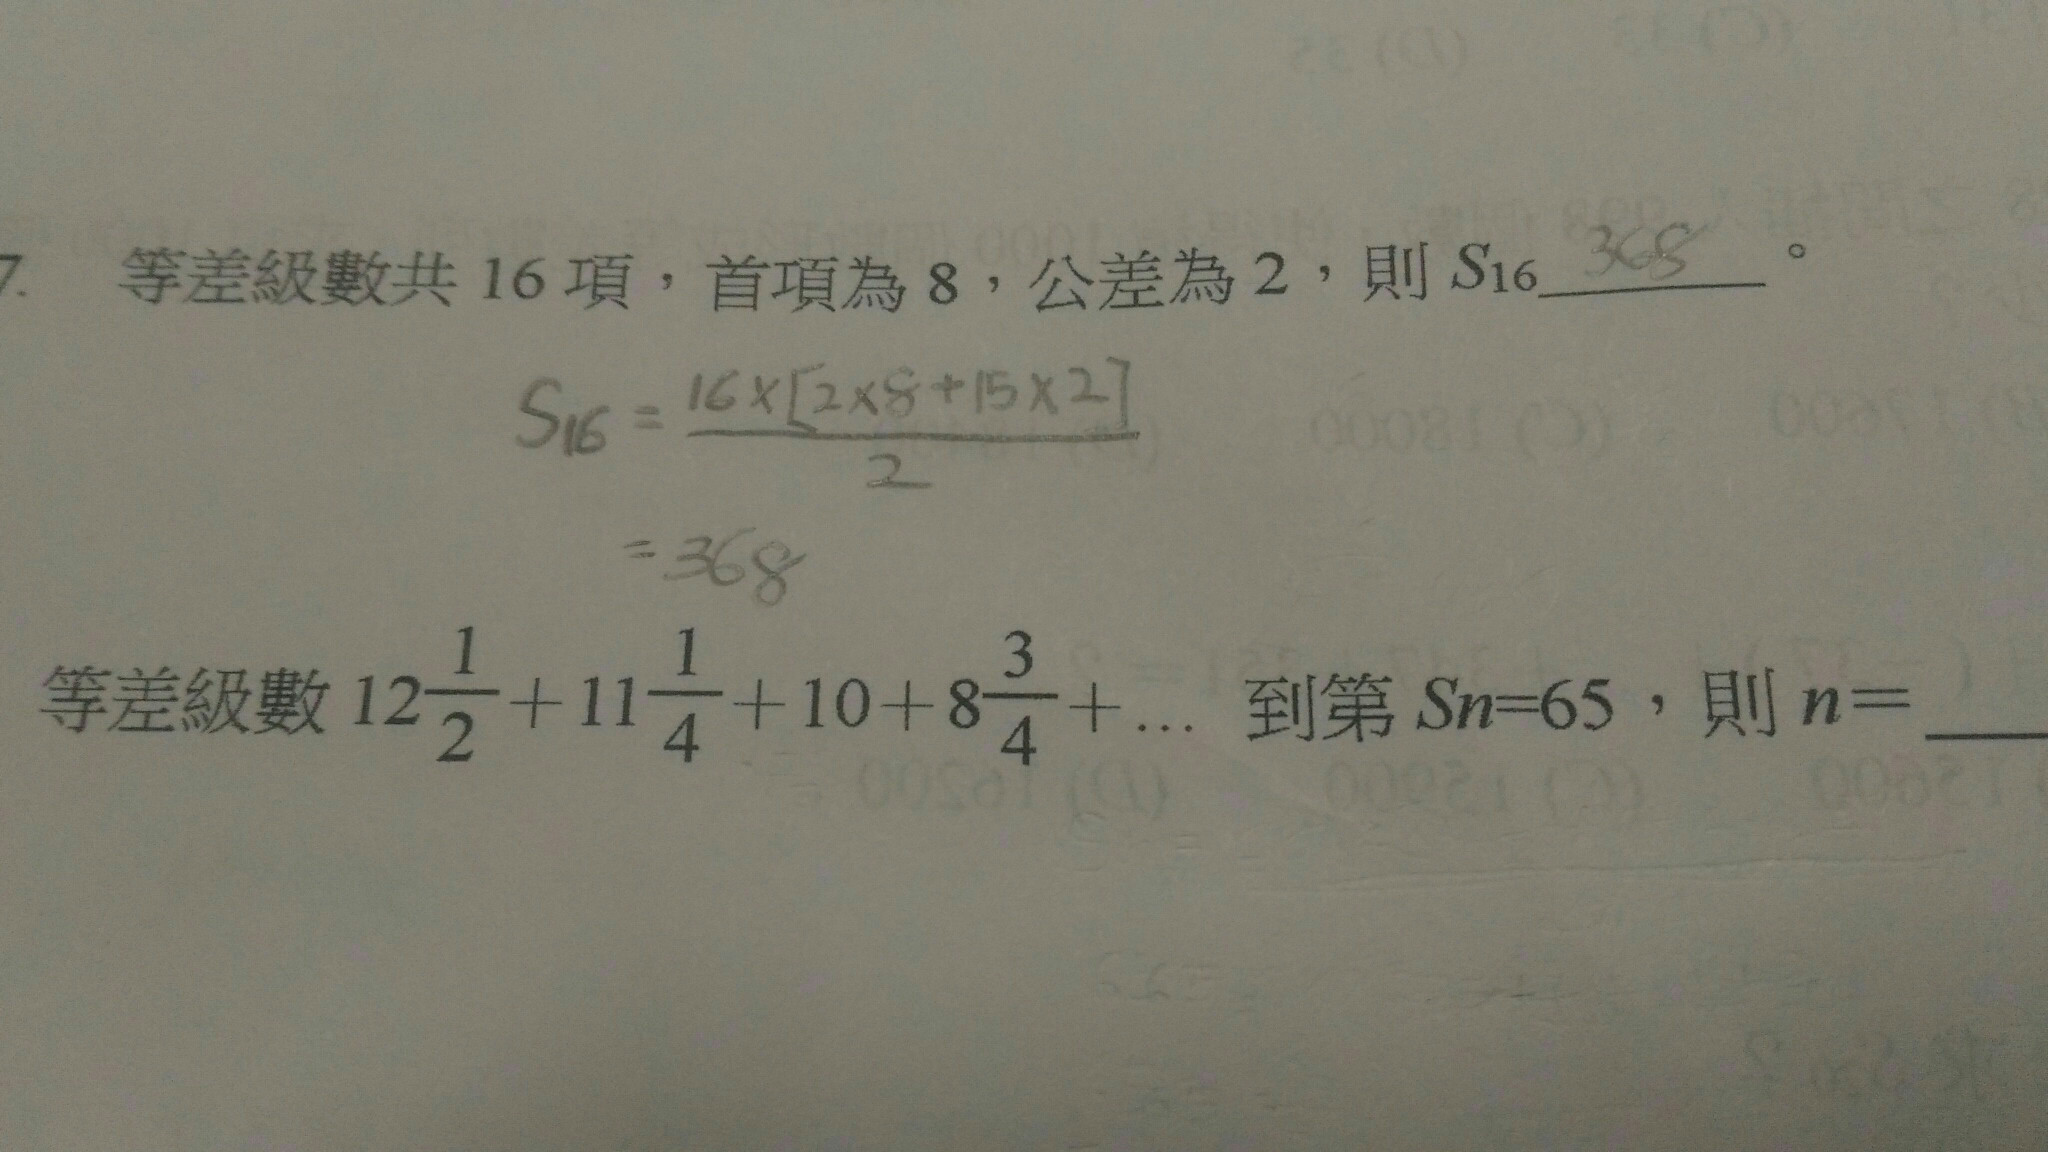 7. 等差級數共 16 項，首項為 8，公差為 2，則 S16 368 。
S16 = 16×[2×8+15×2] / 2
= 368
等差級數 12 1/2 + 11 1/4 + 10 + 8 3/4 + … 到第 Sn=65，則 n=